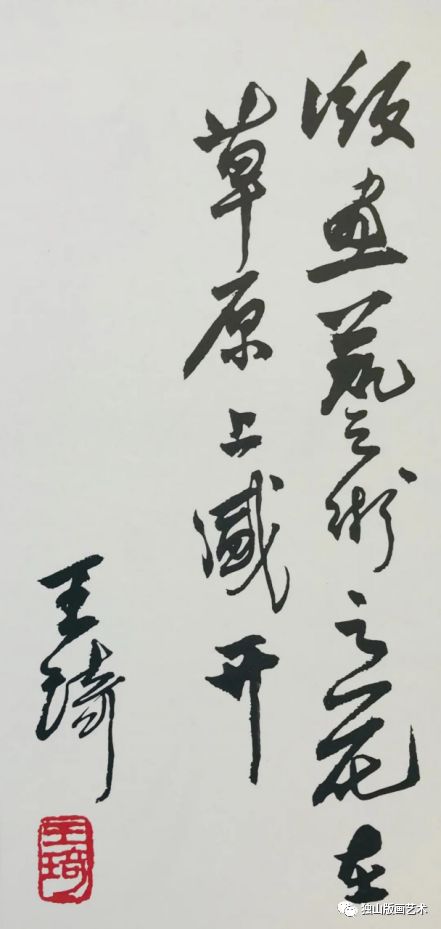 版画藝術之花在
草原上盛开
王琦
王琦
独山版画艺术